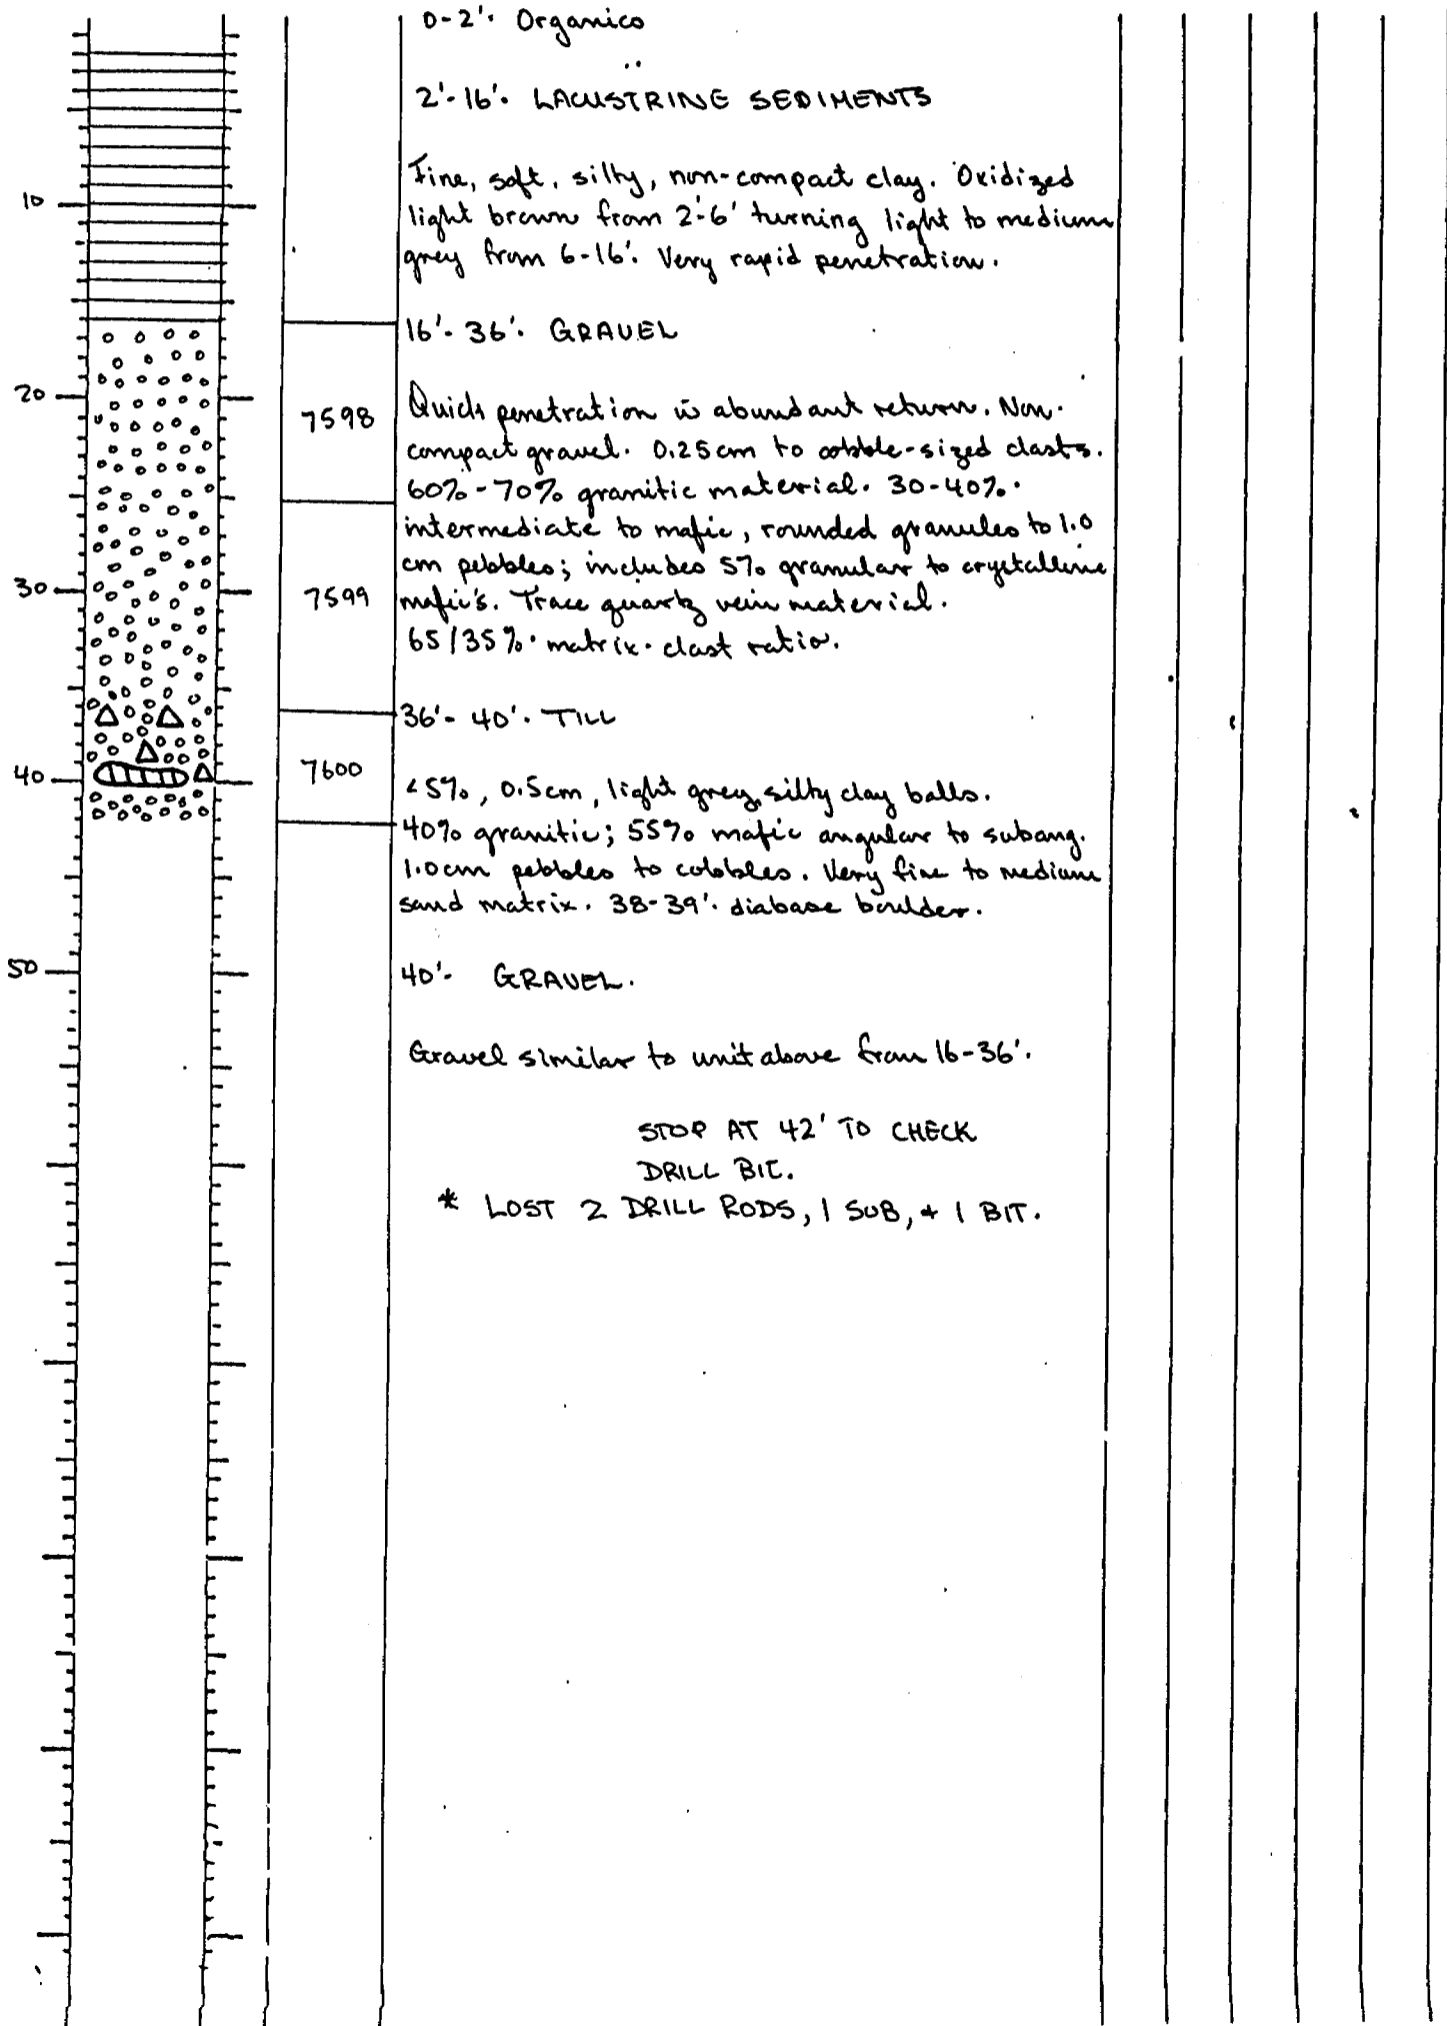 0-2'. Organics
2'-16'. LACUSTRINE SEDIMENTS
Fine, soft, silty, non-compact clay. Oxidized
10
light brown from 2'-6' turning light to medium
grey from 6-16'. Very rapid penetration.
16'-36'. GRAVEL
20
7598
Quick penetration w abundant return. Non-
compact gravel. 0.25cm to cobble-sized clasts.
60%-70% granitic material. 30-40%.
intermediate to mafic, rounded granules to 1.0
cm pebbles; includes 5% granular to crystalline
30
7599
mafic's. Trace quartz vein material.
65/35%. matrix. clast ratio.
36'- 40'. TILL
40
7600
<5%, 0.5cm, light grey, silty clay balls.
40% granitic; 55% mafic angular to subang.
1.0cm pebbles to cobbles. Very fine to medium
sand matrix. 38-39'. diabase boulder.
50
40'- GRAVEL.
Gravel similar to unit above from 16-36'.
STOP AT 42' TO CHECK
DRILL BIT.
* LOST 2 DRILL RODS, 1 SUB, + 1 BIT.